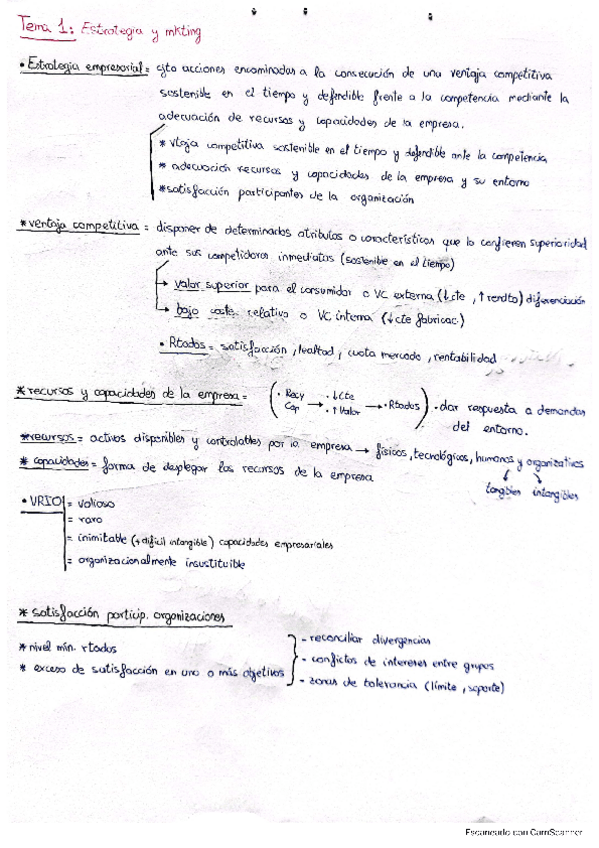 Tema 1: Estrategia y mkting
• Estrategia empresarial = cjto acciones encaminadas a la consecución de una ventaja competitiva
sostenible en el tiempo y defendible frente a la competencia mediante la
adecuación de recursos y capacidades de la empresa.
* vtaja competitiva sostenible en el tiempo y defendible ante la competencia
* adecuación recursos y capacidades de la empresa y su entorno
* satisfacción participantes de la organización
* ventaja competitiva = disponer de determinados atributos o características que la confieren superioridad
ante sus competidores inmediatos (sostenible en el tiempo)
→ valor superior para el consumidor o VC externa (↓cte, ↑rendto) diferenciación
→ bajo coste relativo o VC interna (↓cte fabricac.)
• Rtados = satisfacción, lealtad, cuota mercado, rentabilidad
* recursos y capacidades de la empresa = ( • Rec y Cap → • ↓Cte • ↑Valor → • Rtados ) • dar respuesta a demandas
del entorno.
* recursos = activos disponibles y controlables por la empresa → físicos, tecnológicos, humanos y organizativos
* capacidades = forma de desplegar los recursos de la empresa
tangibles intangibles
• VRIO = valioso
= raro
= inimitable (+ difícil intangible) capacidades empresariales
= organizacionalmente insustituible
* satisfacción particip. organizaciones
* nivel mín. rtados
* exceso de satisfacción en uno o más objetivos
- reconciliar divergencias
- conflictos de intereses entre grupos
- zonas de tolerancia (límite, soporte)
Escaneado con CamScanner